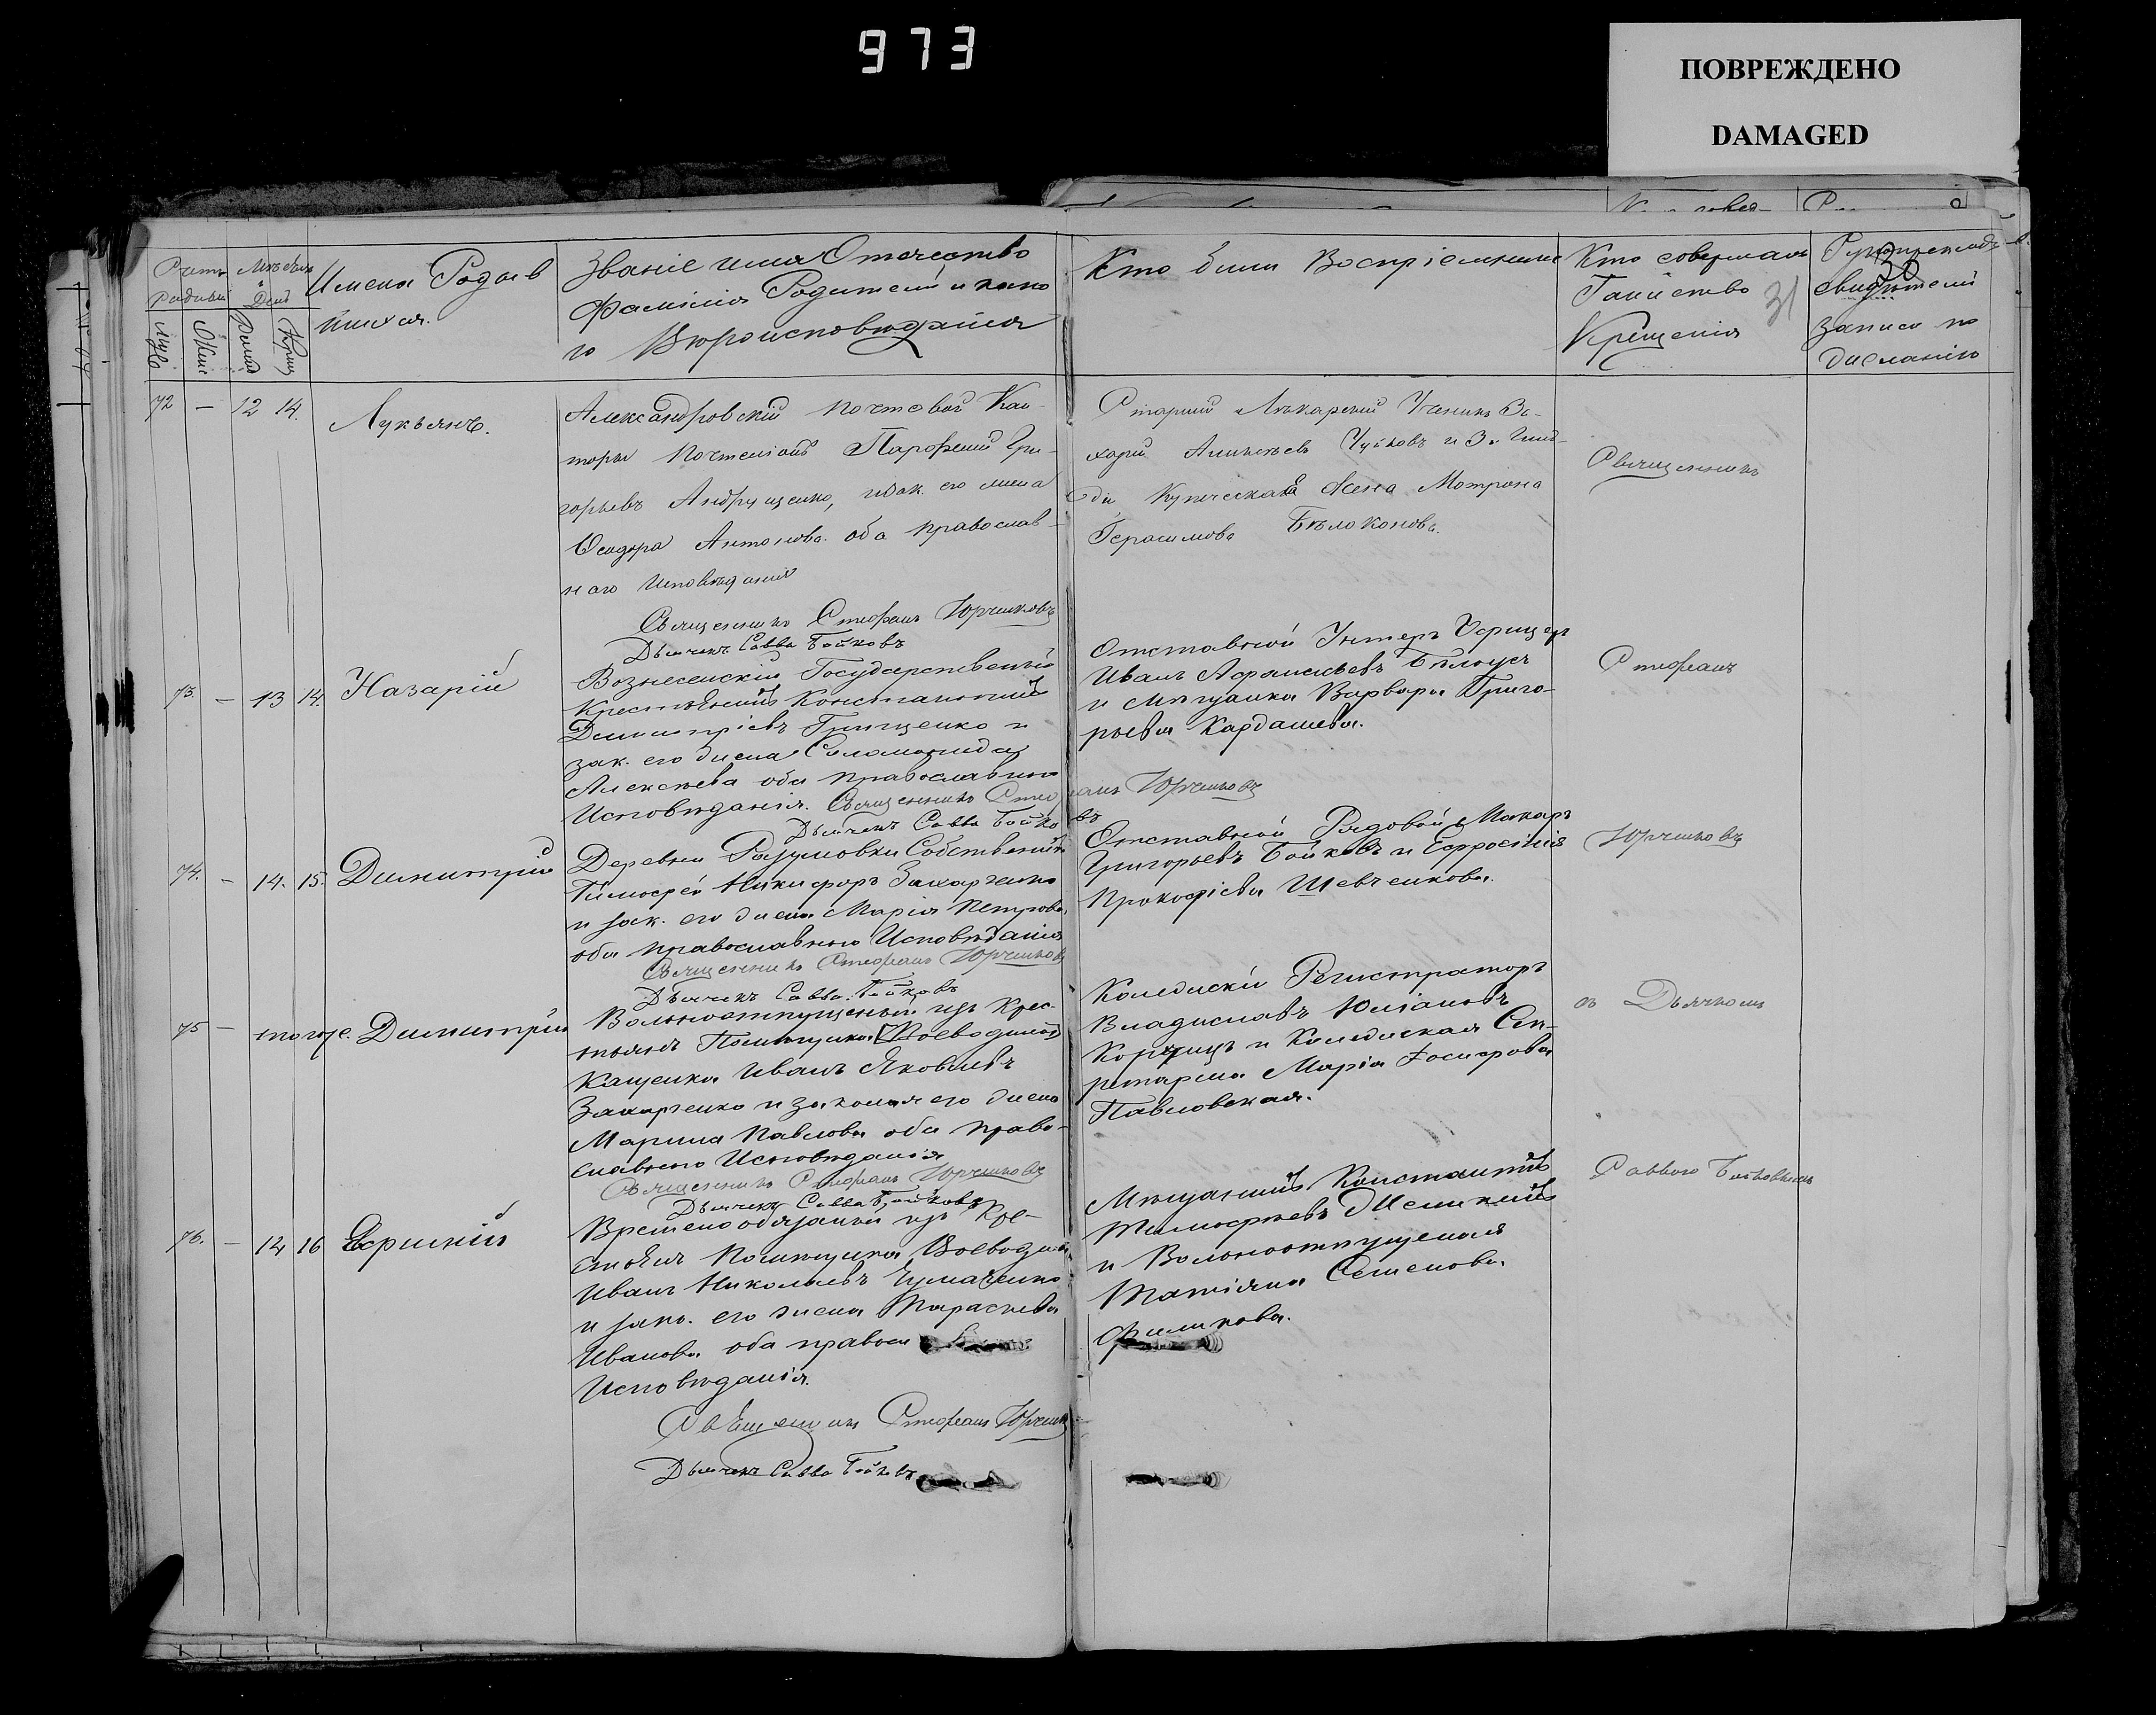 973
ПОВРЕЖДЕНО
DAMAGED
30
31
Счетъ Родив.
Мѣсяцъ и День
Имена Родив
шихся.
Званіе имя Отечество
Фамилія Родителей и како
го Вѣроисповѣданія
Кто были Воспріемники
Кто совершалъ
Таинство
Крещенія
Рукоприкладъ
свидѣтелей
записи по
желанію
72 — 12 14. Лукьянъ.
Александровскій почтовой Кон-
торы Почтеліонъ Парфений Гри-
горьевъ Андрущенко, и зак. его жена
Феодора Антонова. оба православ-
наго Исповѣданія
Священникъ Стефанъ Юрченковъ
Дьячекъ Савва Бойковъ
Старший Лѣкарский Ученикъ За-
харий Алексѣевъ Чуйковъ и 3й Гиль-
діи Купеческая Жена Мотрона
Герасимова Бѣлоконова.
Священникъ
73. — 13 14. Назарій
Вознесенскій Государственный
Крестьянинъ Константинъ
Димитріевъ Грищенко и
зак. его жена Соломонида
Алексѣева оба православнаго
Исповѣданія. Священникъ Стефанъ Юрченковъ
Дьячекъ Савва Бойковъ
Отставной Унтеръ Офицеръ
Иванъ Афанасьевъ Бѣлоусъ
и Мѣщанка Варвара Григо-
рьева Кардашева.
Стефанъ
74. — 14. 15. Димитрій
Деревни Разумовки Собственникъ
Тимофей Никифоръ Захарченко
и зак. его жена Марія Петрова
оба православнаго Исповѣданія
Священникъ Стефанъ Юрченковъ
Дьячекъ Савва Бойковъ
Отставной Рядовой Макаръ
Григорьевъ Бойковъ и Ефросинія
Прокофіева Шевченкова.
Юрченковъ
75 — тогоже. Димитрій
Вольноотпущенный изъ Крес-
тьянъ Помѣщика Воеводиной
Кащенка Иванъ Яковлевъ
Захарченко и законая его жена
Марина Павлова оба право-
славнаго Исповѣданія
Священникъ Стефанъ Юрченковъ
Дьячекъ Савва Бойковъ
Колежскій Регистраторъ
Владиславъ Юліановъ
и Колежская Сек-
ретарша Марія Іосифова
Павловская.
съ Дьячкомъ
76. — 12 16 Ефимій
Временнообязаный изъ Кре-
стьянъ Помѣщика Воеводина
Иванъ Николаевъ Чумаченко
и зако. его жена Параскева
Иванова оба правосл
Исповѣданія.
Священникъ Стефанъ Юрченковъ
Дьячекъ Савва Бойковъ
Мѣщанинъ Константинъ
Тимофеевъ
и Вольноотпущеная
Татіяна Семенова
Филипова.
Саввою Бойковымъ